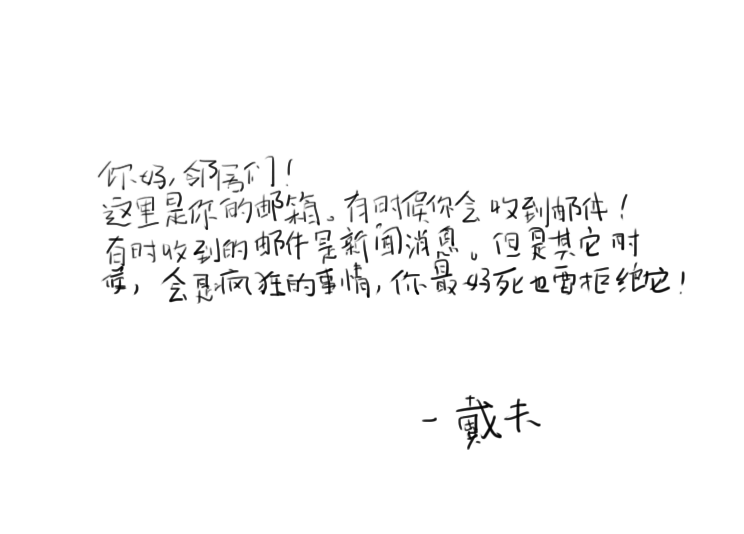 你好,邻居们!
这里是你的邮箱。有时候你会收到邮件!
有时收到的邮件是新闻消息。但是其它时
候,会是疯狂的事情,你最好死也要拒绝它!
- 戴夫